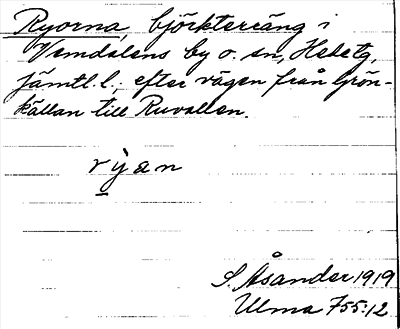 Ryorna, björkterräng i
Vemdalens by o. sn, Hede tg,
Jämtl. l., efter vägen från Grön-
källan till Ruvallen.
rỳan
S. Åsander 1919
Ulma 755:12